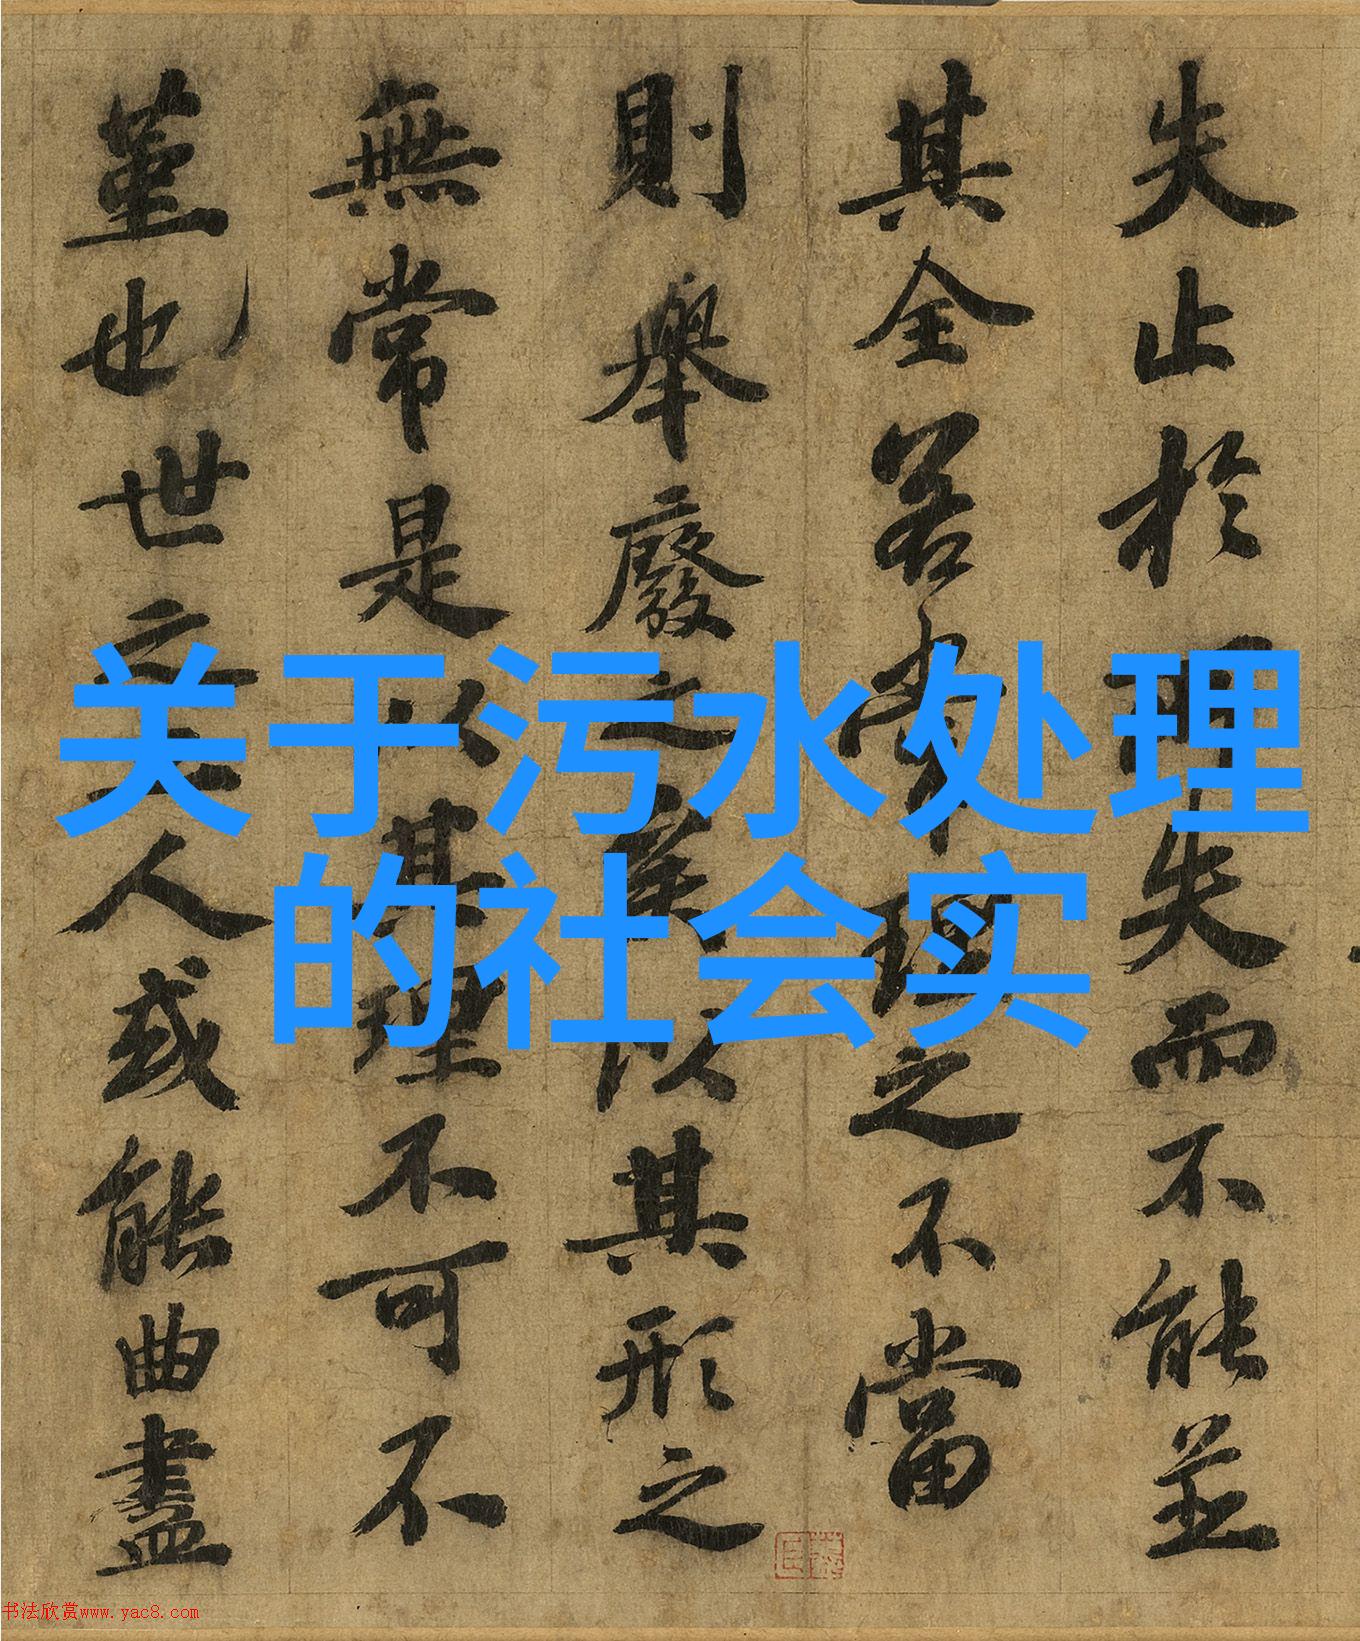 关于污水处理
的社会实
失止於所失而不能並
其全若常理之不當
則舉廢之矣以其形之
無常是以其理不可不
堇也世之工人或能曲盡
书法欣赏www.yac8.com